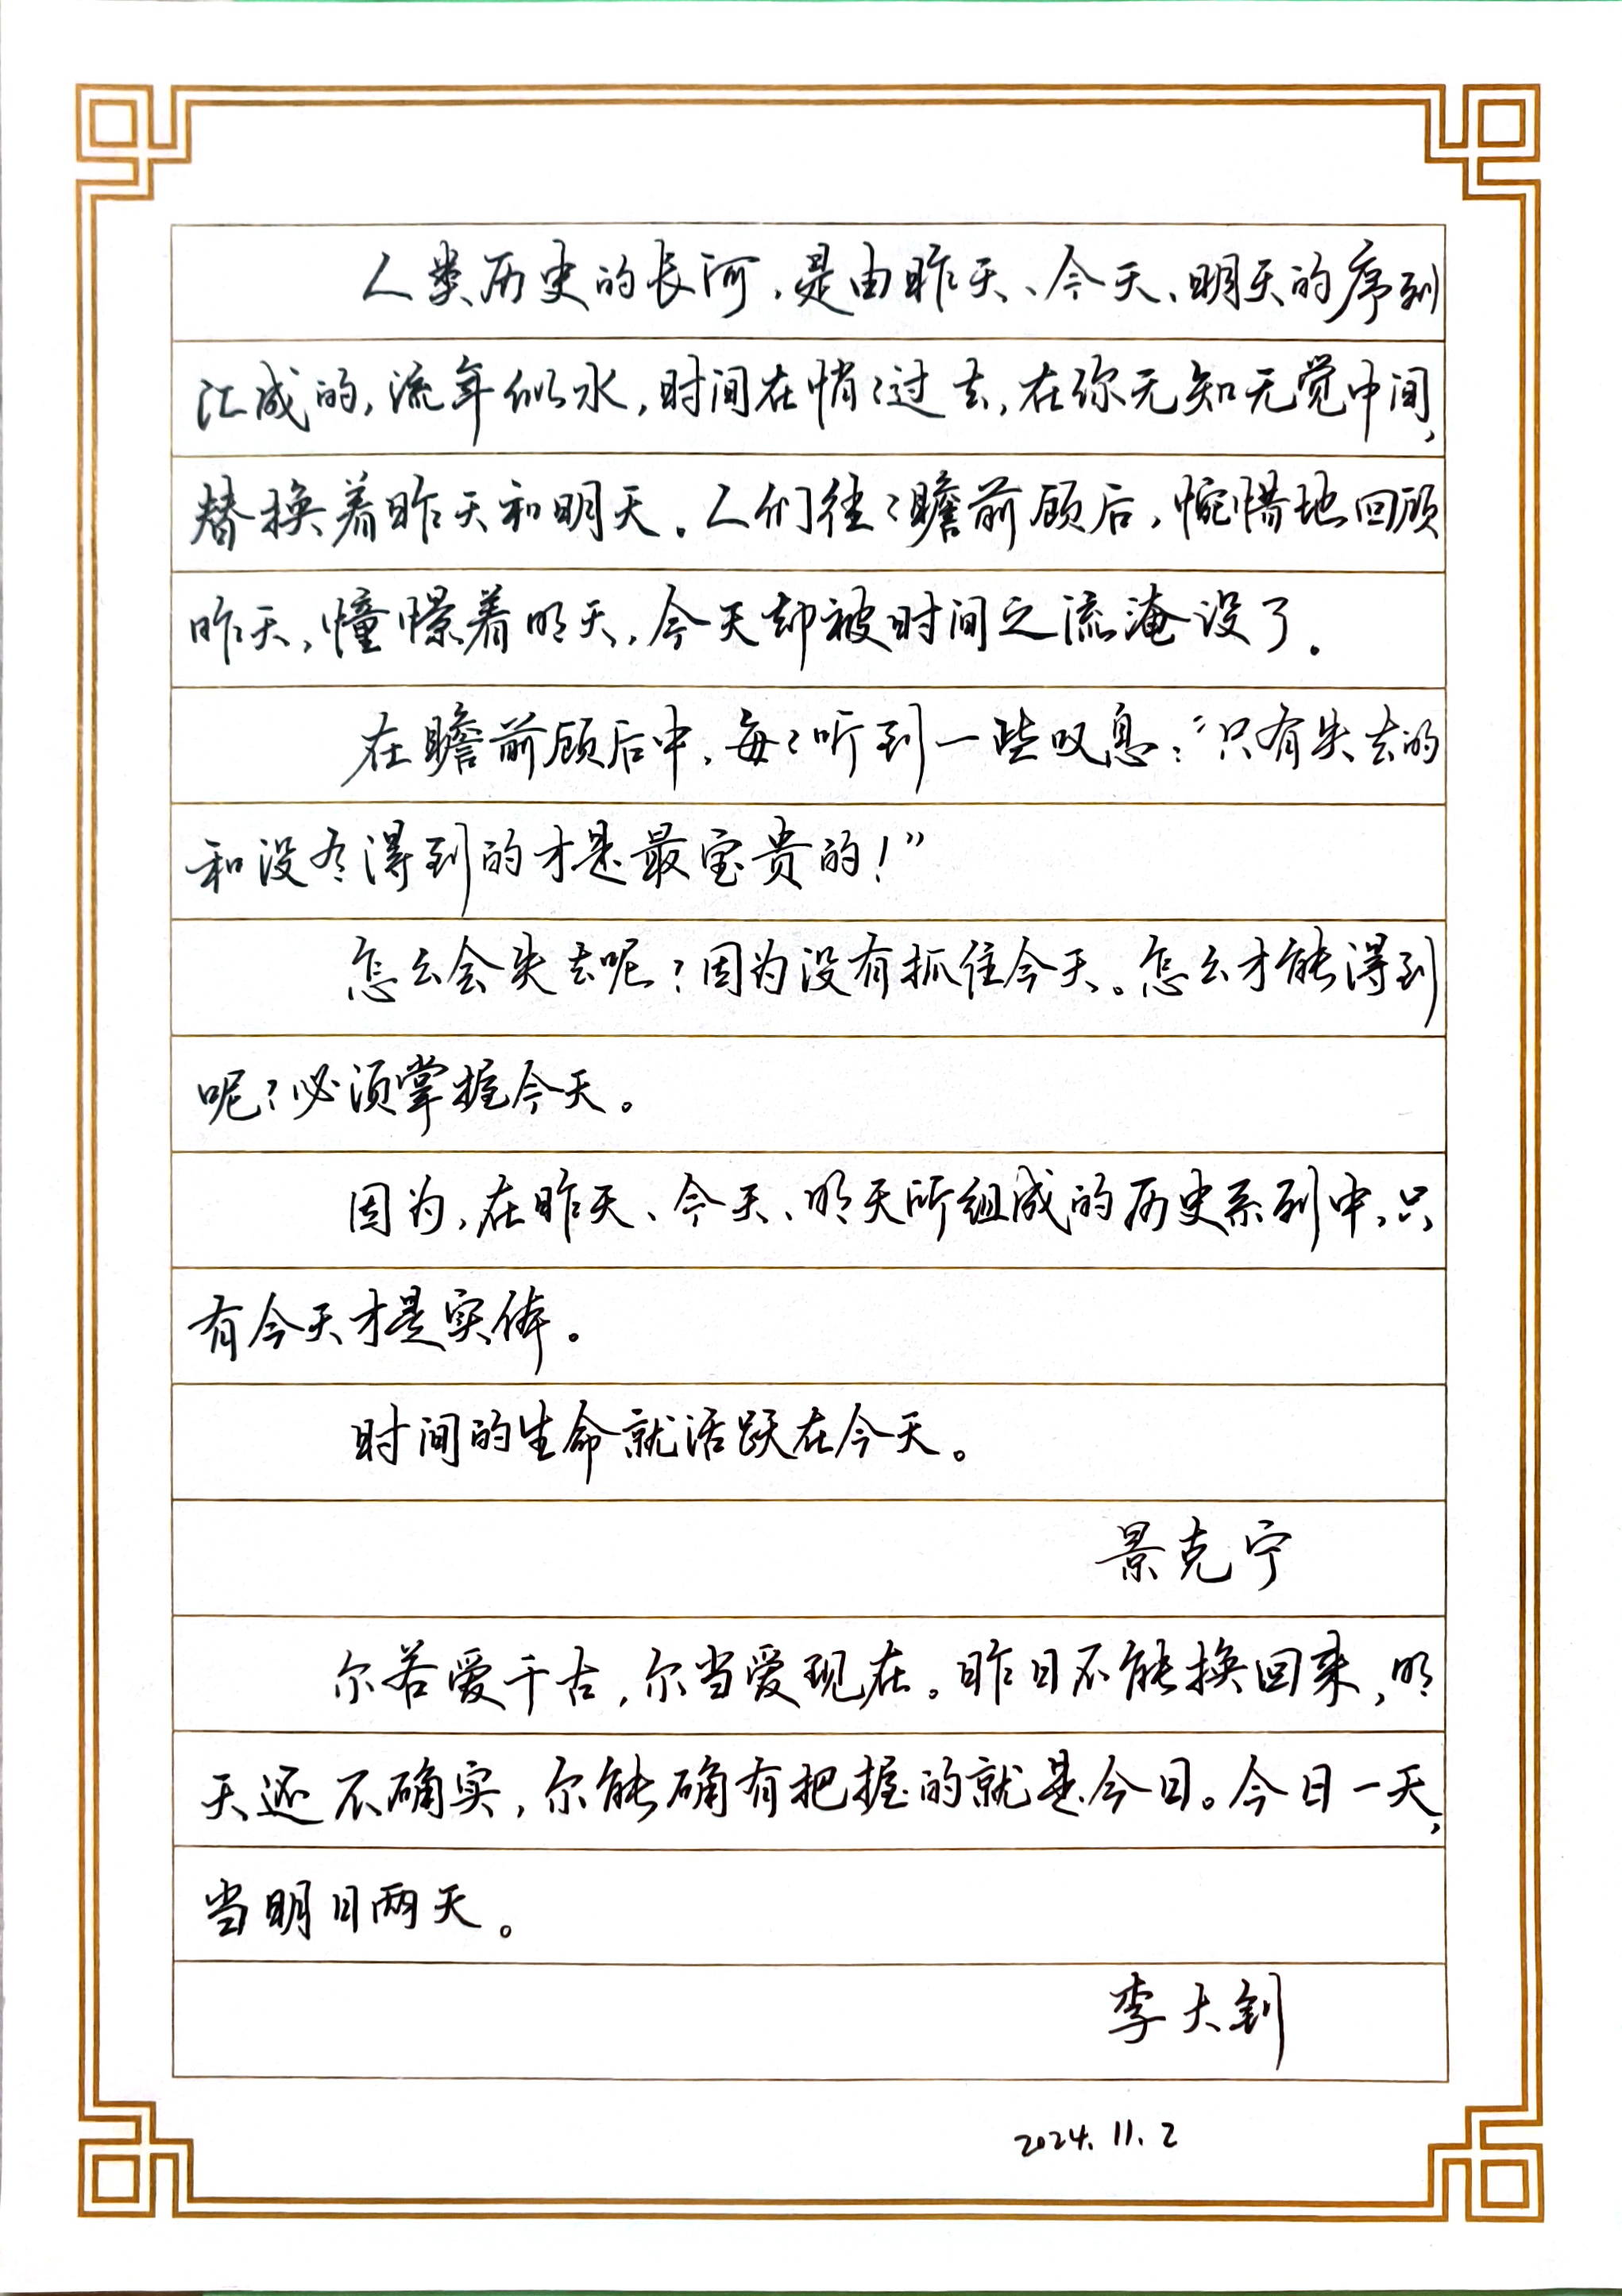 人类历史的长河，是由昨天、今天、明天的序列
汇成的，流年似水，时间在悄々过去，在你无知无觉中间，
替换着昨天和明天。人们往々瞻前顾后，惋惜地回顾
昨天，憧憬着明天，今天却被时间之流淹没了。
在瞻前顾后中，每々听到一些叹息：“只有失去的
和没有得到的才是最宝贵的！”
怎么会失去呢？因为没有抓住今天。怎么才能得到
呢？必须掌握今天。
因为，在昨天、今天、明天所组成的历史系列中，只
有今天才是实体。
时间的生命就活跃在今天。
景克宁
尔若爱千古，尔当爱现在。昨日不能换回来，明
天还不确实，尔能确有把握的就是今日。今日一天，
当明日两天。
李大钊
2024.11.2